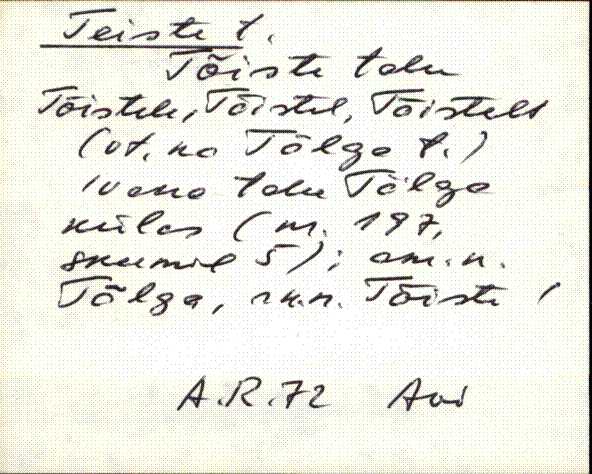 Teiste t.
Tõiste talu
Tõistele, Tõistel, Tõistelt
(vt. ka Tõlga t.)
/vana talu Tõlga
külas (m. 197,
5); am.n.
Tõlga, rk.n. Tõiste /
A.R.72 Avi